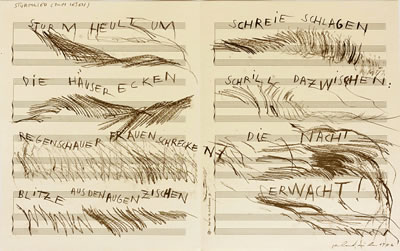 STURMLIED (ZUM LESEN)
STURM HEULT UM
DIE HÄUSERECKEN
REGENSCHAUER FRAUEN SCHRECKEN
BLITZE AUS DEN AUGEN ZISCHEN
SCHREIE SCHLAGEN
SCHRILL DAZWISCHEN:
DIE NACHT
ERWACHT!